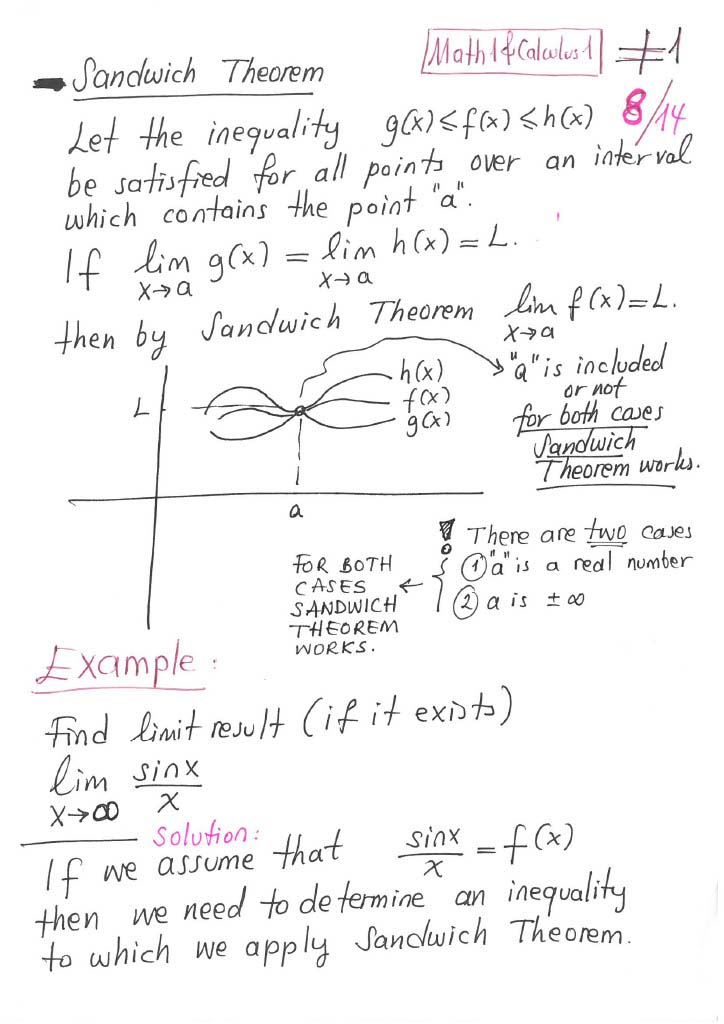 Math1&Calculus1 #1
- Sandwich Theorem
8/14
Let the inequality g(x) ≤ f(x) ≤ h(x)
be satisfied for all points over an interval
which contains the point "a".
If lim g(x) = lim h(x) = L.
x→a x→a
then by Sandwich Theorem lim f(x) = L.
x→a
"a" is included
or not
for both cases
Sandwich
Theorem works.
h(x)
f(x)
g(x)
L
a
! There are two cases
① "a" is a real number
② a is ±∞
FOR BOTH
CASES
SANDWICH
THEOREM
WORKS.
Example:
Find limit result (if it exists)
lim sinx/x
x→∞
Solution:
If we assume that sinx/x = f(x)
then we need to determine an inequality
to which we apply Sandwich Theorem.